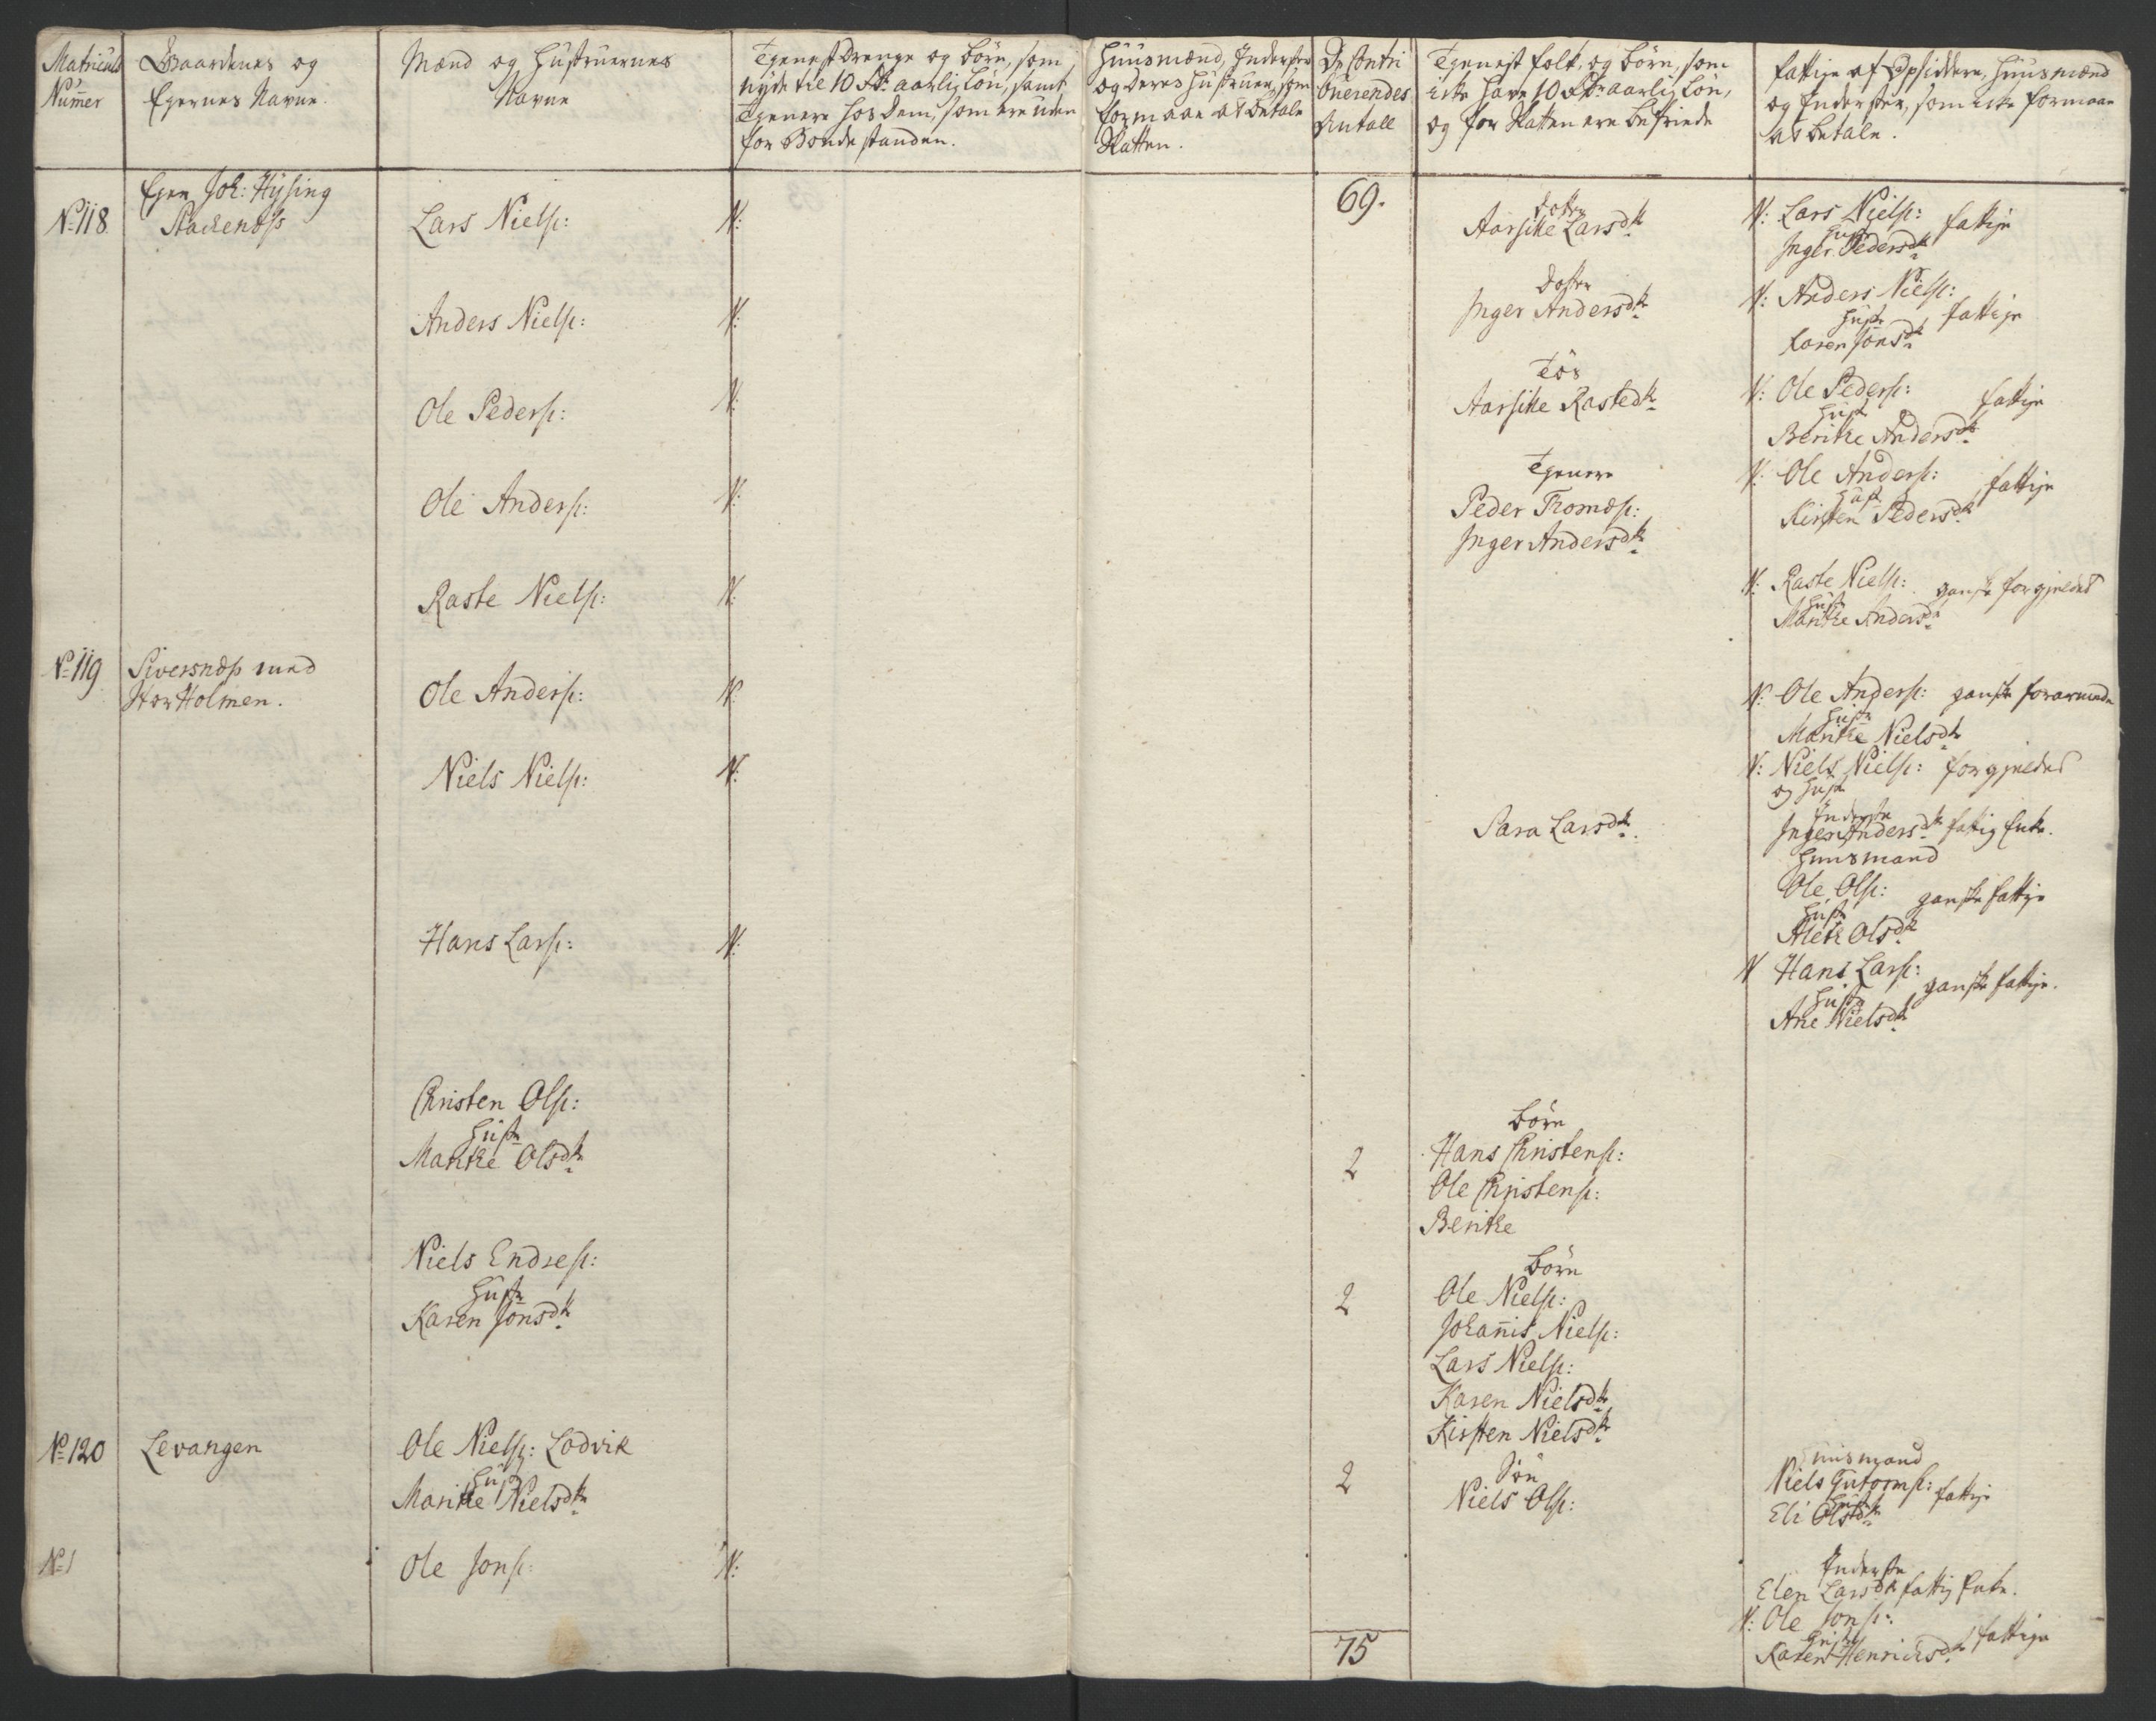 Matricul
Nummer
Gaardenes og
Ejernes Navne.
Mænd og Hustruernes
Navne
Tjenestdrenge og Börn, som
nyde til 10 Rdr. aarlig Lön, samt
Tjenere hos dem, som ere uden
for Bondestanden.
Huusmænd, Inderster
og deres Hustruer, som
formaae at betale
Skatten.
De Contri
buerendes
Antall
Tjenist folk, og Börn, som
icke have 10 Rdr. aarlig Lön,
og for Skatten ere befriede
fattige af Opsiddere, Huusmænd
og Inderster, som icke formaae
at betale.
69.
Ejer Joh: Hysing
No 118
Lars Niels:
N:
Dotter
Aarsille Larsdtr
N: Lars Niels: fattige
Hustr
Inger Pedersdtr
Anders Niels:
N:
Dotter
Inger Andersdtr
N: Anders Niels: fattige
Hustr
Karen Jonsdtr
Ole Peders:
N:
Tös
Aarsille Rastedtr
N: Ole Peders: fattige
Hustr
Beritke Andersdtr
Ole Anders:
N:
Tjenere
Peder Tromds:
Inger Andersdtr
N: Ole Anders: fattige
Hust
Kirsten Pedersdtr
Raste Niels:
N:
N: Raste Niels: ganske forgjeldet
Hustr
Maritke Andersdr
No 119
Siversnæs med
Hor Holmen.
Ole Anders:
N:
N: Ole Anders: ganske forarmede
Hustr
Maritke Nielsdtr
Niels Niels:
N:
N: Niels Niels: forgjeldet
og Hustr
Sara Larsdtr.
Inderste
Inger Andersdtr fattig Enke.
Huusmand
Ole Ols: ganske fattige
Hustr
Aleth Olsdtr
Hans Lars:
N:
N Hans Lars: ganske fattige.
Hustr
Ane Nielsdtr
Christen Ols:
Hustr
Maritke Olsdtr
2
Börn
Hans Christens:
Ole Christens:
Beritke
Niels Endres:
Hustr
Karen Jonsdtr
2
Börn
Ole Niels:
Johannis Niels:
Lars Niels:
Karen Nielsdtr
Kirsten Nielsdtr
No 120
Levangen
Ole Niels: Lodvik
Hustr
Maritke Nielsdtr
2
Sön
Niels Ols:
Huusmand
Niels Gutorms: fattige
Hustr
Eli Olsdtr
No 1
Ole Jons:
N:
Inderste
Elen Larsdtr fattig Enke.
N: Ole Jons:
Hustr
Karen Henricksdtr fattige
75